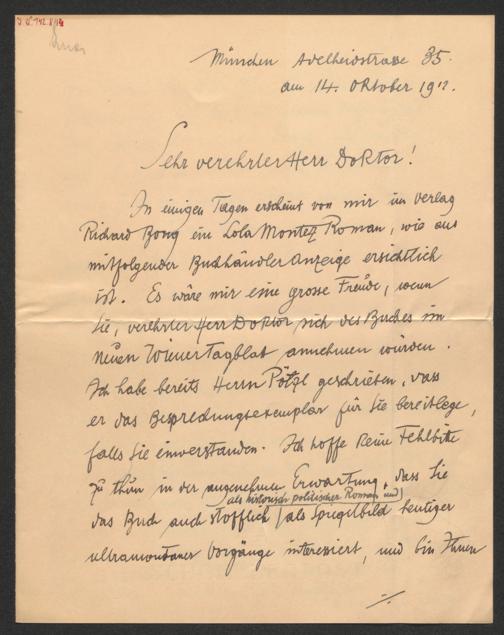 München Adelheidstrasse 35.
am 14. Oktober 1912.
Sehr verehrter Herr Doktor!
In einigen Tagen erscheint von mir im Verlag
Richard Bong ein Lola Montez Roman, wie aus
mitfolgender Buchhändler Anzeige ersichtlich
ist. Es wäre mir eine grosse Freude, wenn
Sie, verehrter Herr Doktor, sich des Buches im
Neuen Wiener Tagblat annehmen würden.
Ich habe bereits Herrn Pötzl geschrieben, dass
er das Besprechungsexemplar für Sie bereitlege,
falls Sie einverstanden. Ich hoffe keine Fehlbitte
zu thun in der angenehmen Erwartung, dass Sie
als historisch politischer Roman und
das Buch auch stofflich / als Spiegelbild heutiger
ultramontaner Vorgänge interessiert, und bin Ihnen
./.